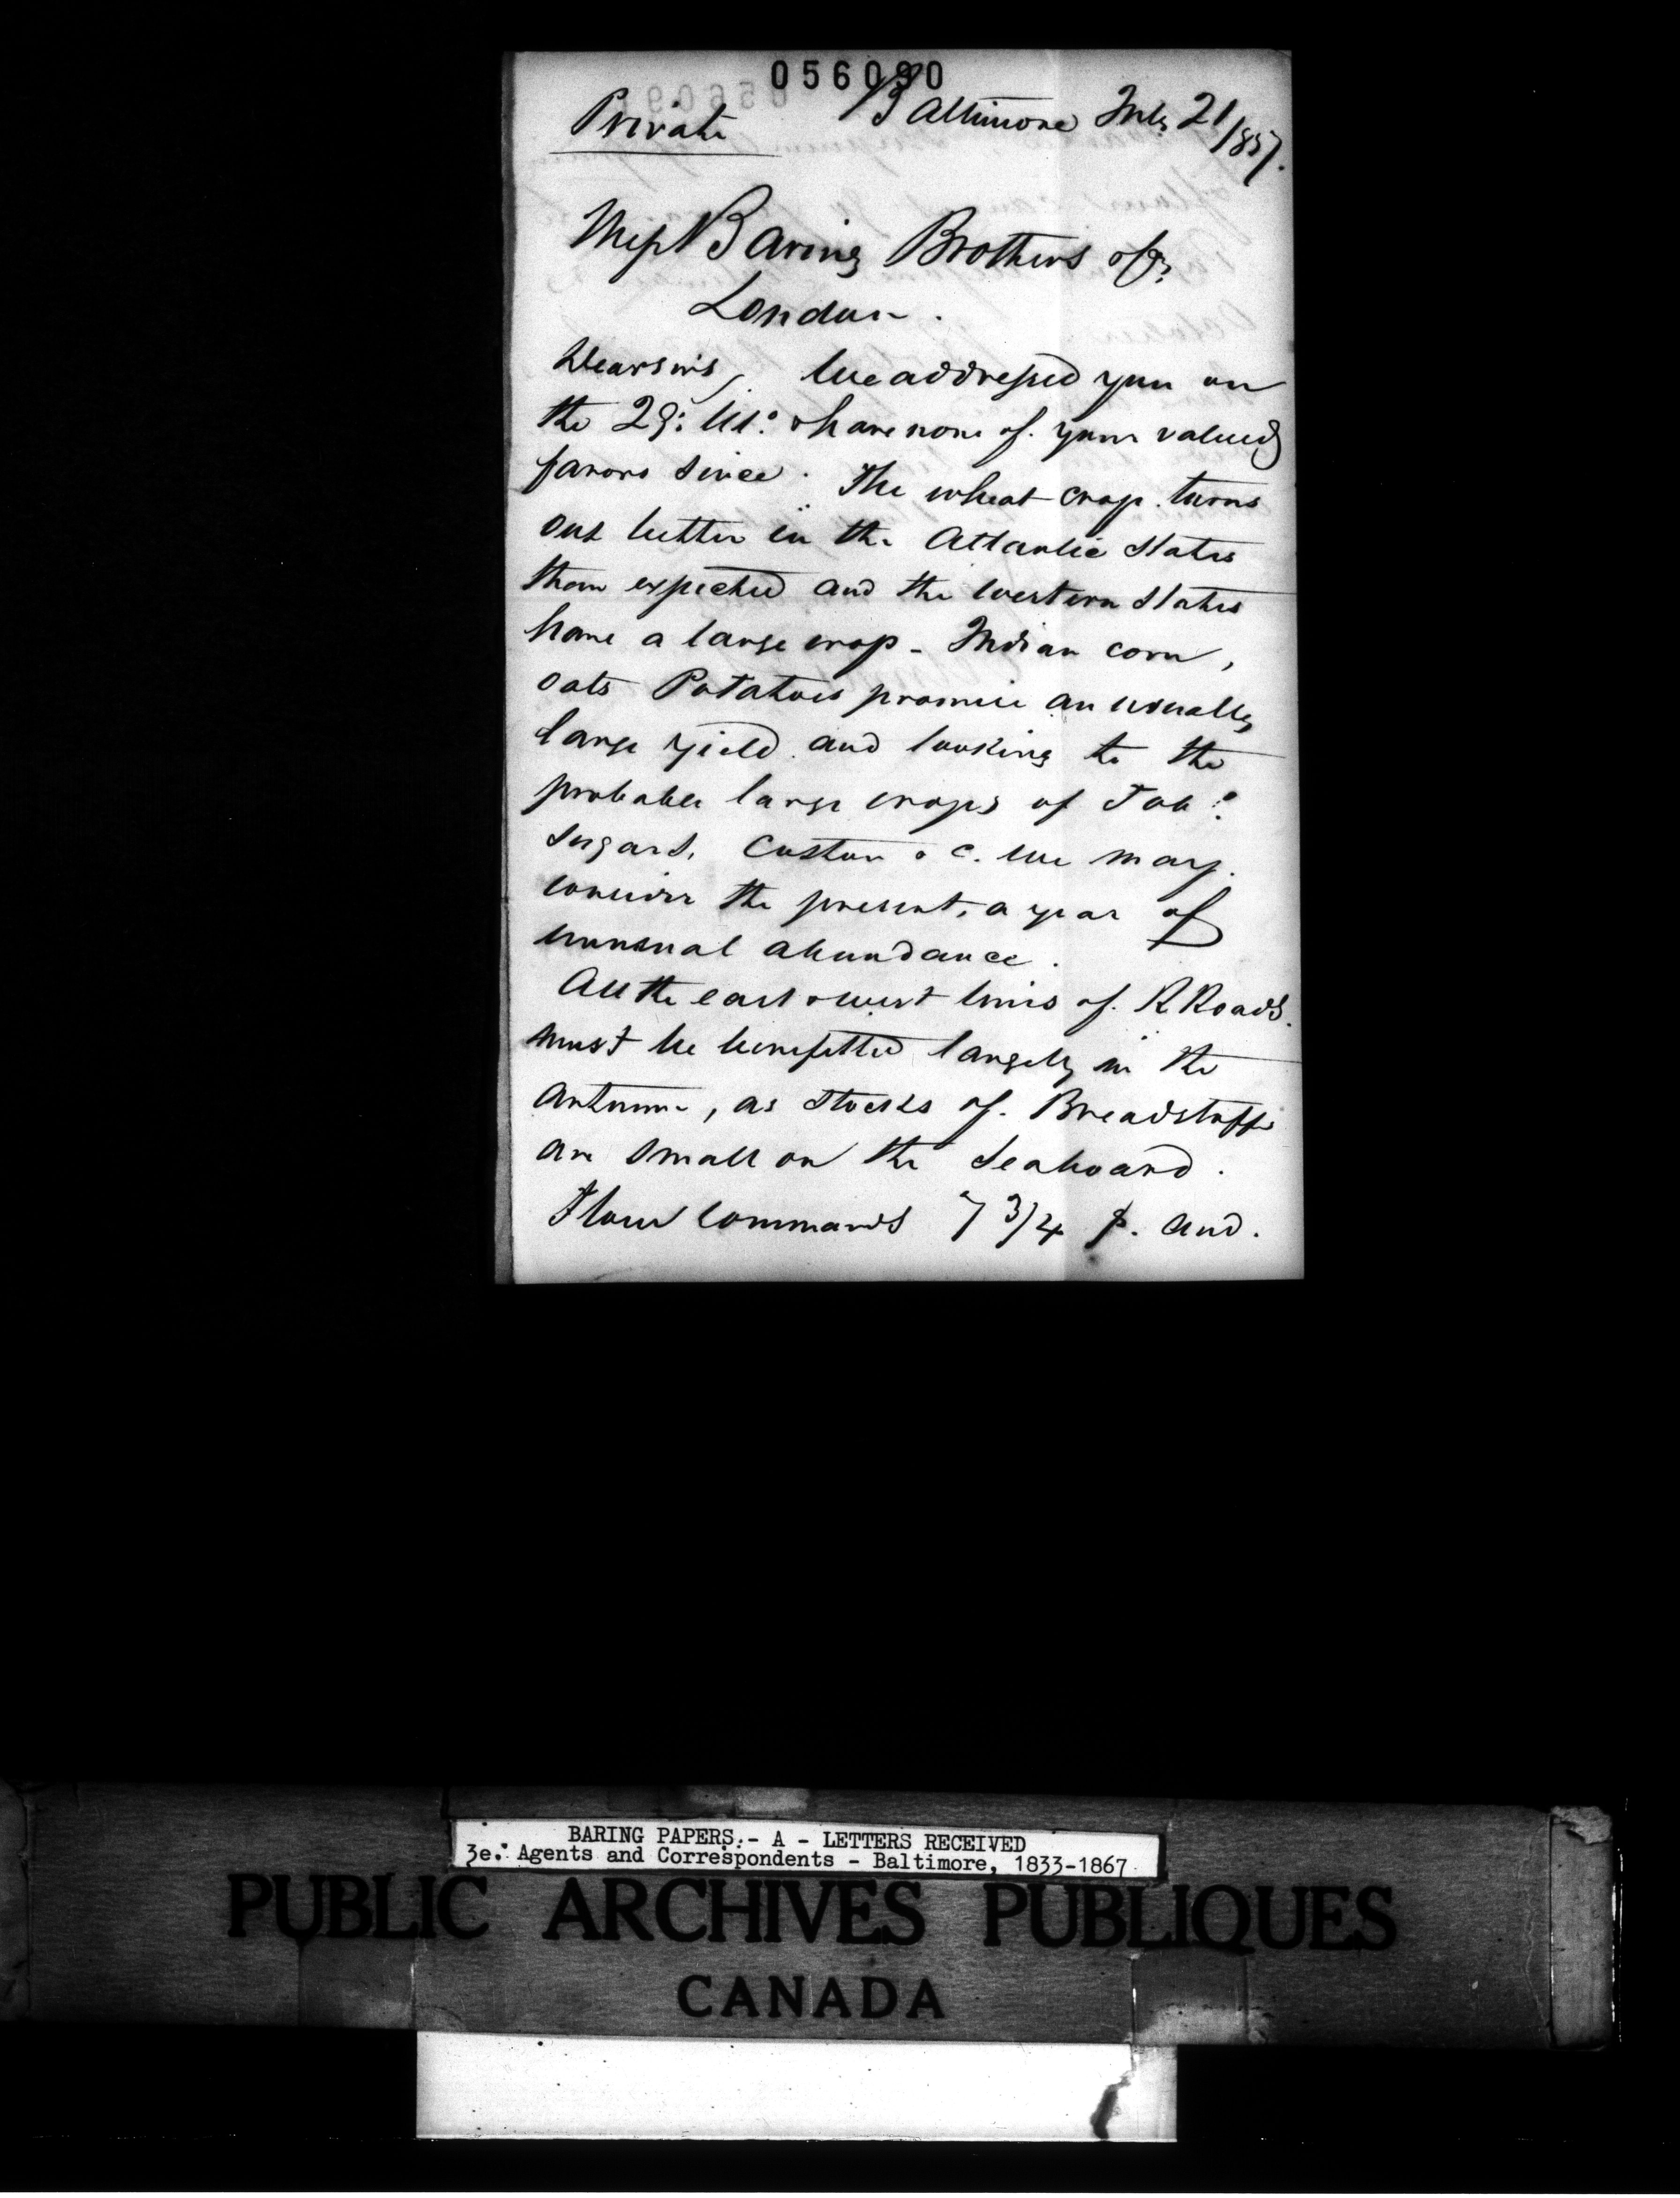 056090
Private Baltimore July 21/1857.
Messrs Baring Brothers & Co
London.
Dear Sirs, We addressed you on
the 29: Ult: & have none of your valued
favors since. The wheat crop turns
out better in the Atlantic States
than expected and the Western States
have a large crop - Indian corn,
oats Potatoes promise an usually
large yield and looking to the
probable large crops of Tobo
Sugars, Cotton &c. we may
consider the present, a year of
unusual abundance.
All the east & west lines of R Roads
must be benefitted largely in the
autumn, as stocks of Breadstuffs
are small on the Seaboard.
Flour commands 7 3/4 $. and.
BARING PAPERS.- A - LETTERS RECEIVED
3e. Agents and Correspondents - Baltimore, 1833-1867
PUBLIC ARCHIVES PUBLIQUES
CANADA